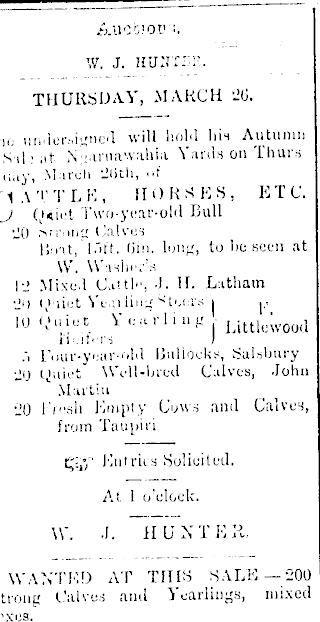 Auctions.
W. J. HUNTER.
THURSDAY, MARCH 26.
he undersigned will hold his Autumn
Sale at Ngaruawahia Yards on Thurs
day, March 26th, of
CATTLE, HORSES, ETC.
Quiet Two-year-old Bull
20 Strong Calves
Boat, 15ft. 6in. long, to be seen at
W. Washer's
12 Mixed Cattle, J. H. Latham
20 Quiet Yearling Steers
10 Quiet Yearling Heifers
F. Littlewood
5 Four-year-old Bullocks, Salsbury
20 Quiet Well-bred Calves, John
Martin
20 Fresh Empty Cows and Calves,
from Taupiri
☞ Entries Solicited.
At 1 o'clock.
W. J. HUNTER.
WANTED AT THIS SALE—200
trong Calves and Yearlings, mixed
exes.